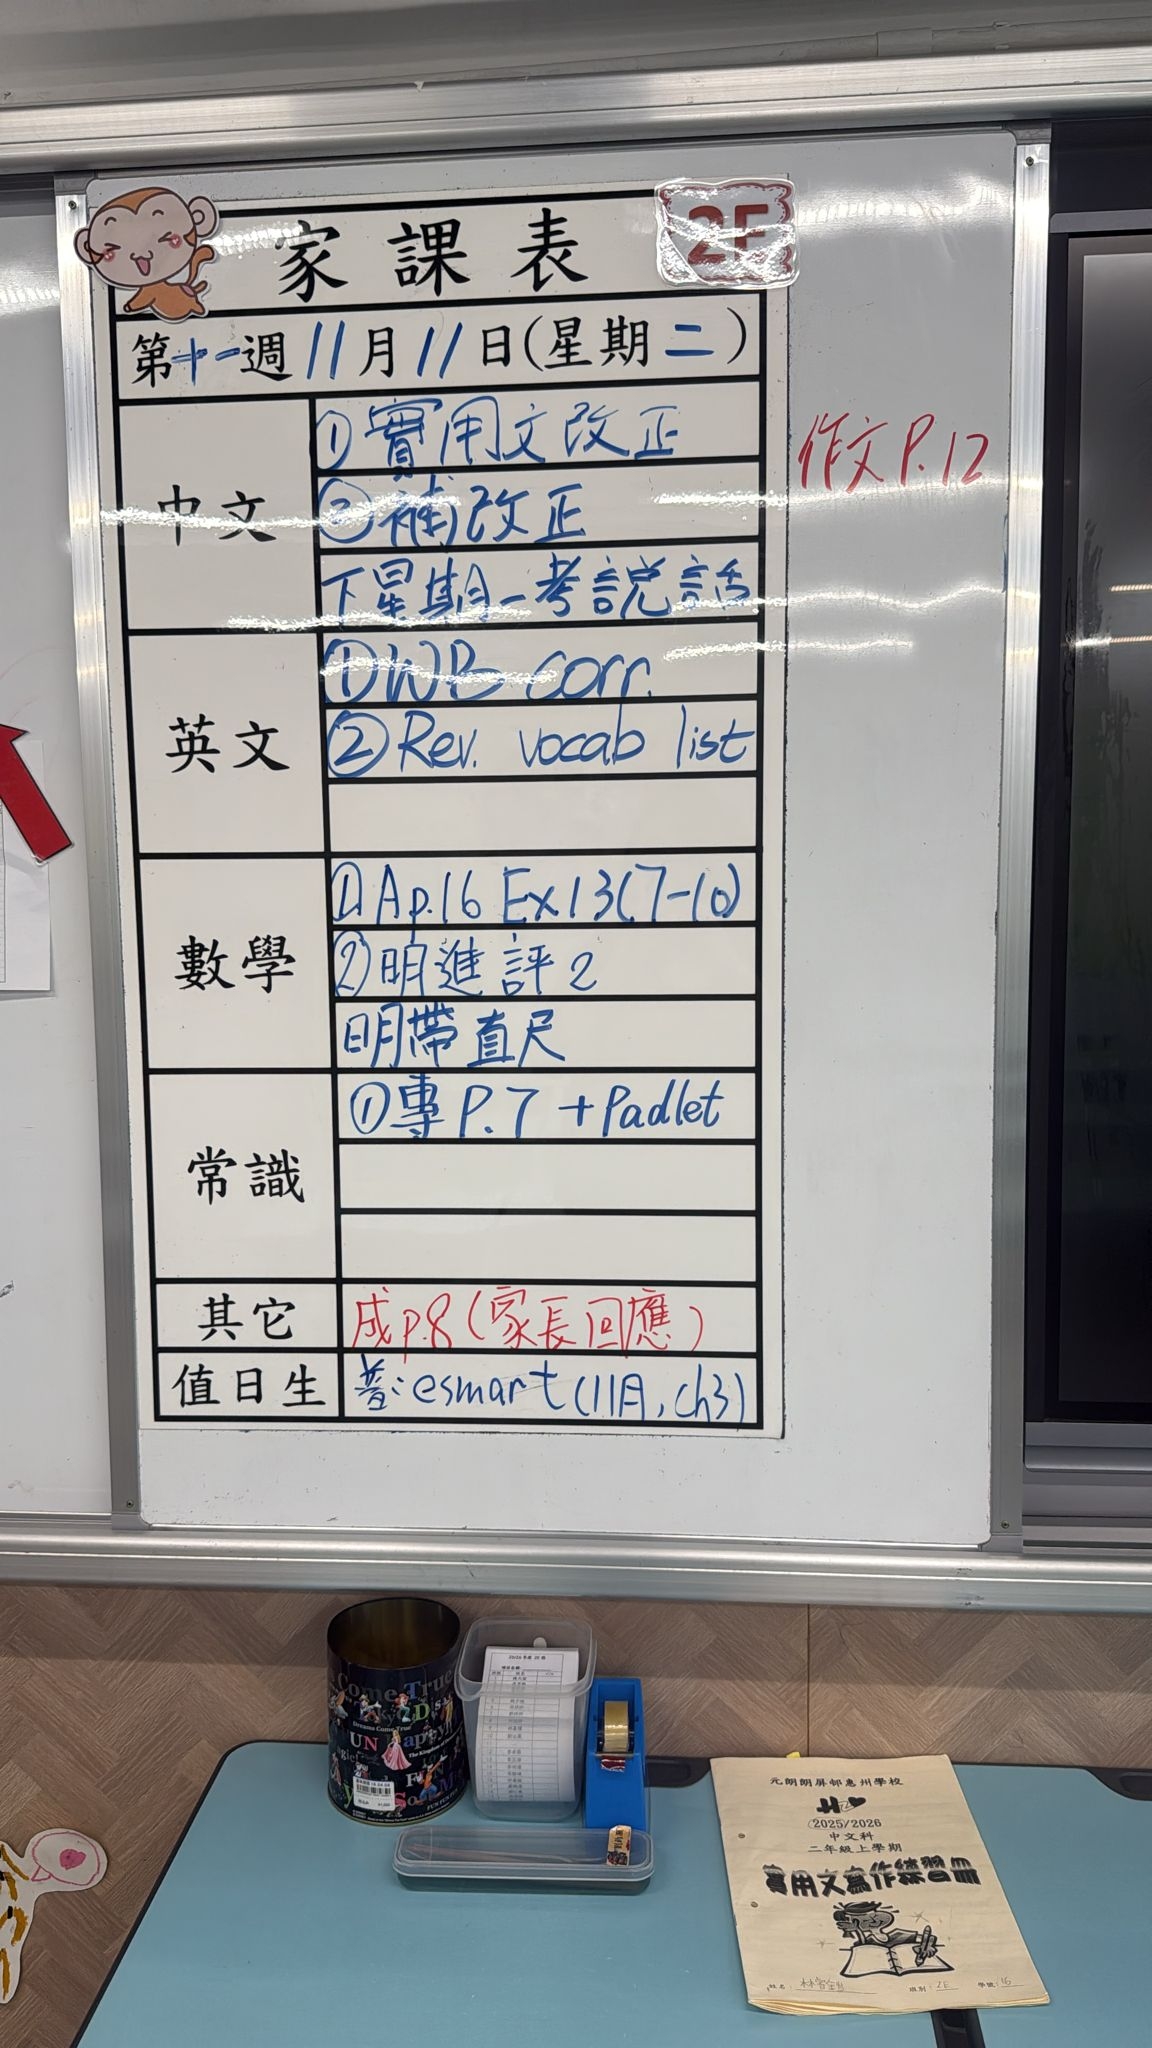 家課表
2E
第十一週11月11日(星期二)
中文
①實用文改正
②補改正
下星期一考說話
作文P.12
英文
①WB corr.
②Rev. vocab list
數學
①Ap.16 Ex13(7-10)
②明進評2
明帶直尺
常識
①專P.7 +Padlet
其它
成p.8(家長回應)
值日生
普:esmart(11月,ch3)
Come True
Dreams Come True
元朗朗屏邨惠州學校
2025/2026
中文科
二年級上學期
實用文寫作練習冊
姓名:
班別:2E
學號:16